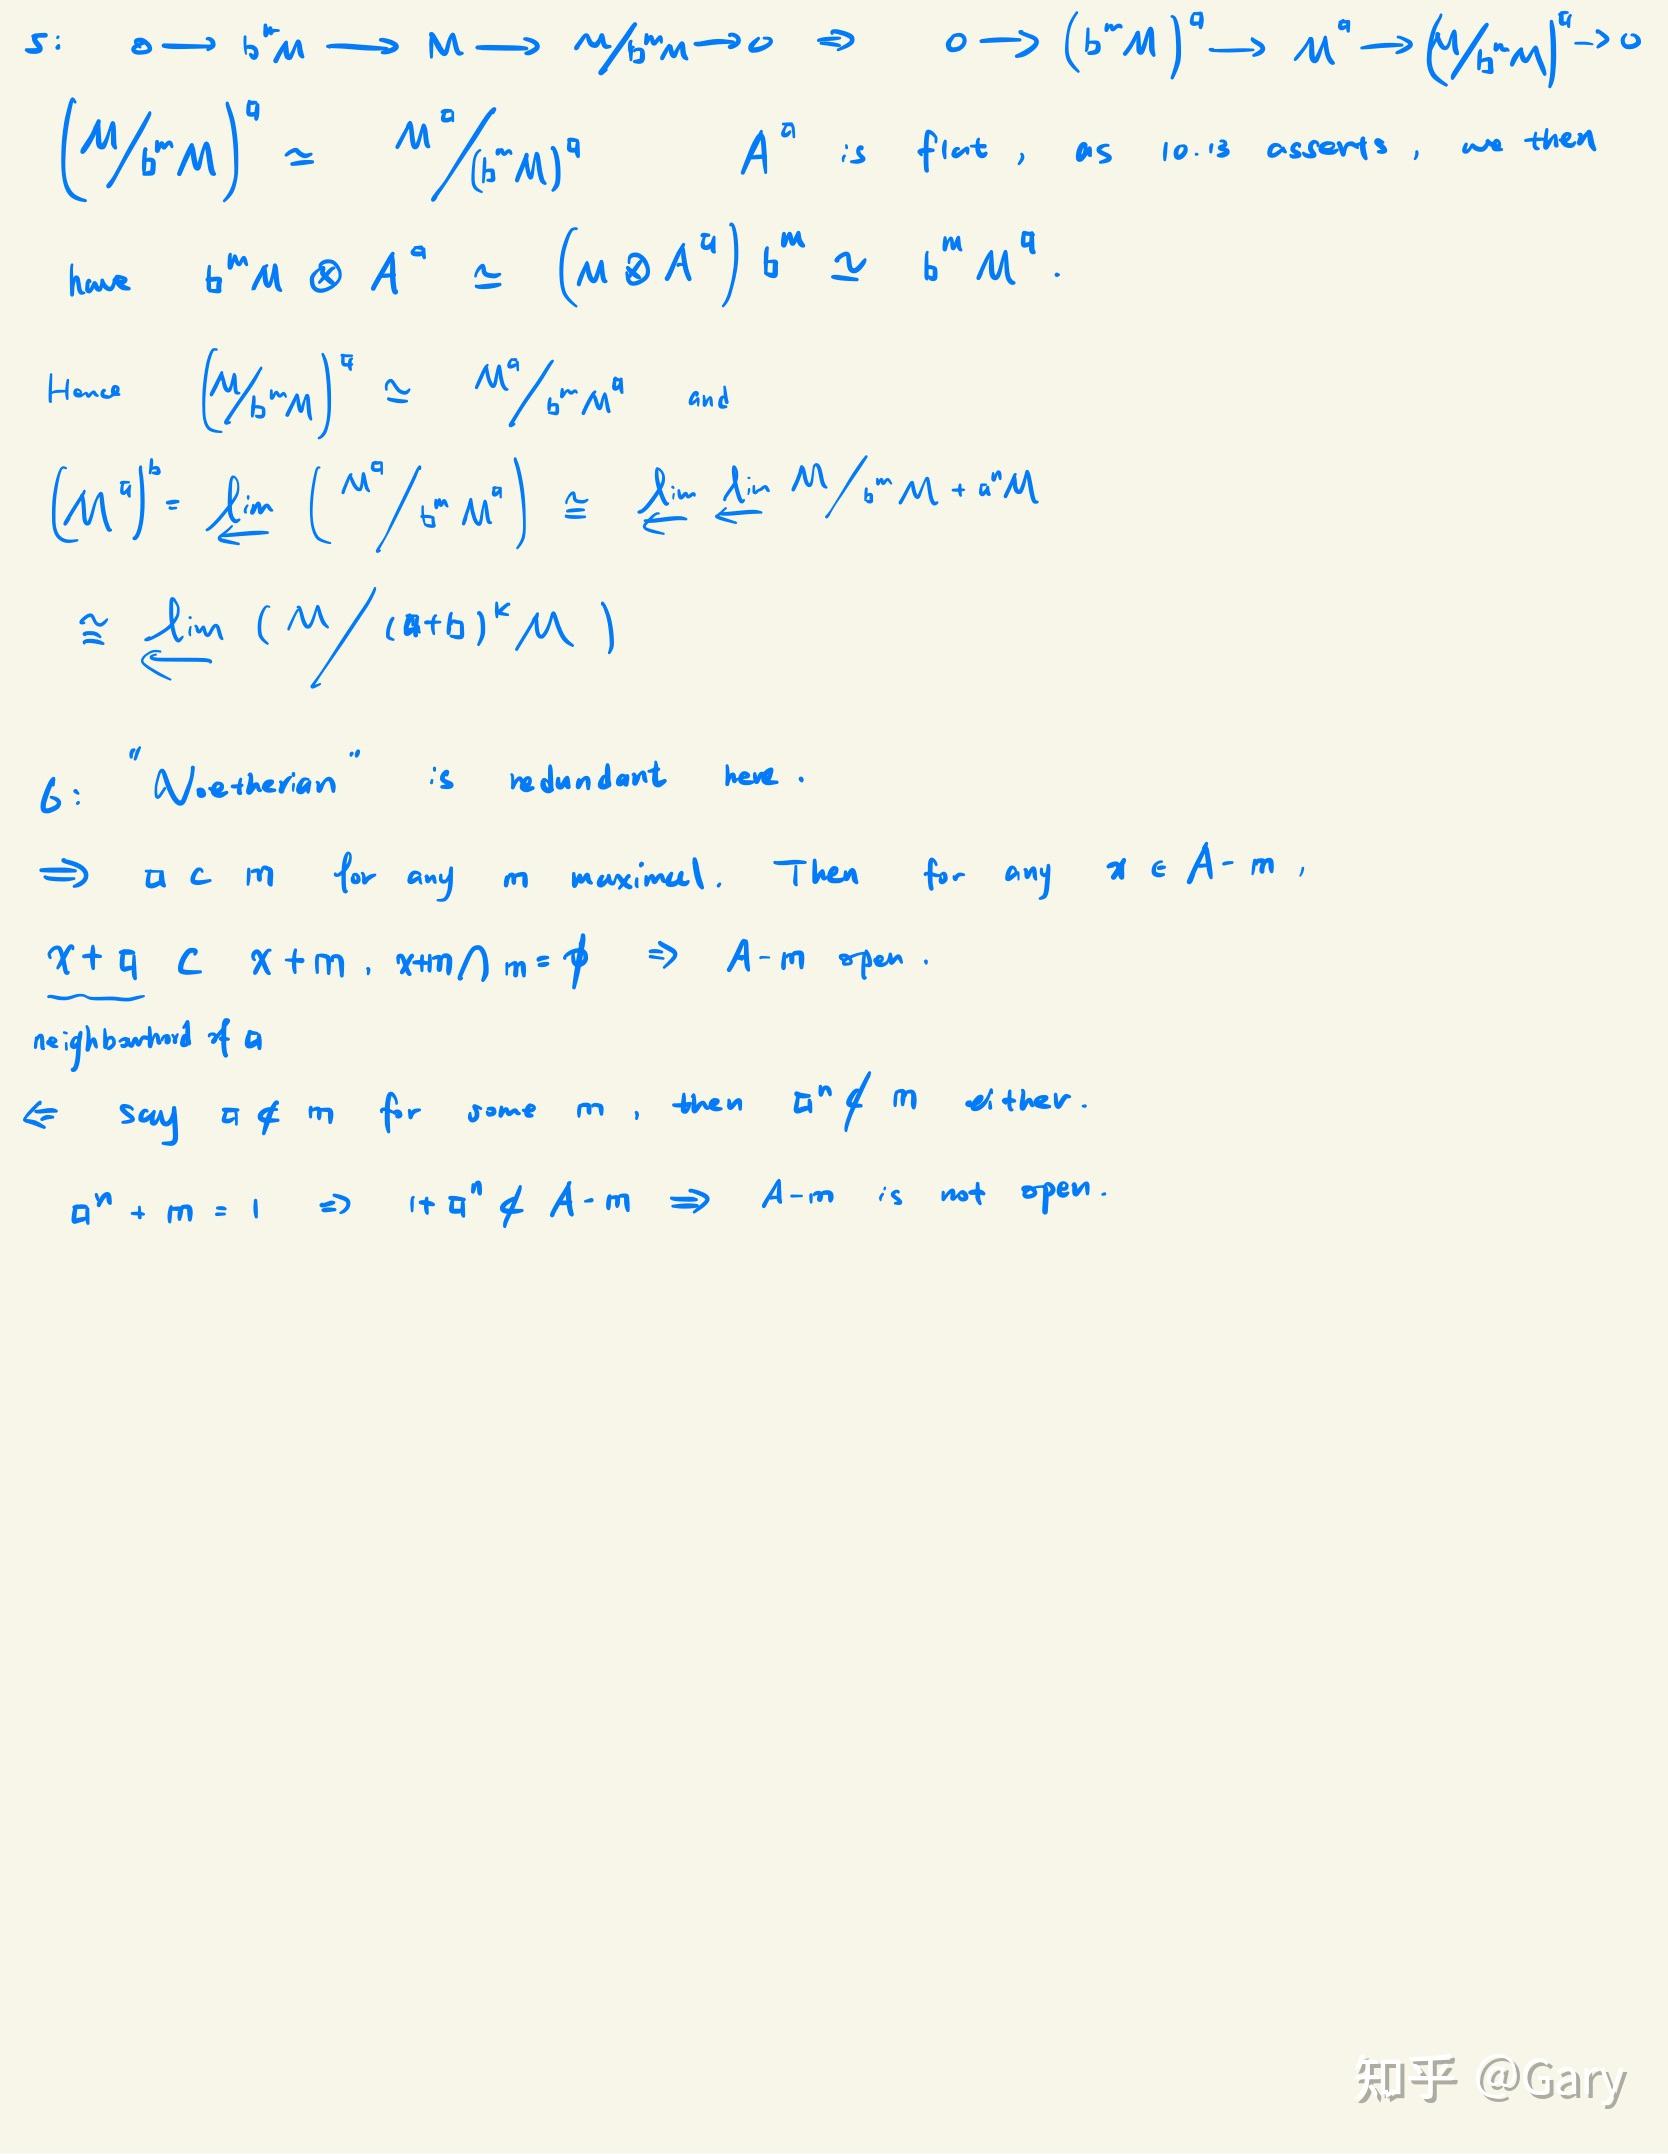 5: 0 → b^m M → M → M/b^m M → 0 ⇒ 0 → (b^m M)^a → M^a → (M/b^m M)^a → 0
(M/b^m M)^a ≃ M^a/(b^m M)^a A^a is flat, as 10.13 asserts, we then
have b^m M ⊗ A^a ≃ (M ⊗ A^a) b^m ≃ b^m M^a.
Hence (M/b^m M)^a ≃ M^a/b^m M^a and
(M^a)^b = lim← (M^a/b^m M^a) ≅ lim← lim← M/b^m M + a^n M
≅ lim← (M/(a+b)^k M)
6: "Noetherian" is redundant here.
⇒ a ⊂ m for any m maximal. Then for any x ∈ A-m,
x+a ⊂ x+m, x+m ∩ m = ϕ ⇒ A-m open.
neighbourhood of a
⇐ say a ⊄ m for some m, then a^n ⊄ m either.
a^n + m = 1 ⇒ 1+a^n ⊄ A-m ⇒ A-m is not open.
知乎 @Gary